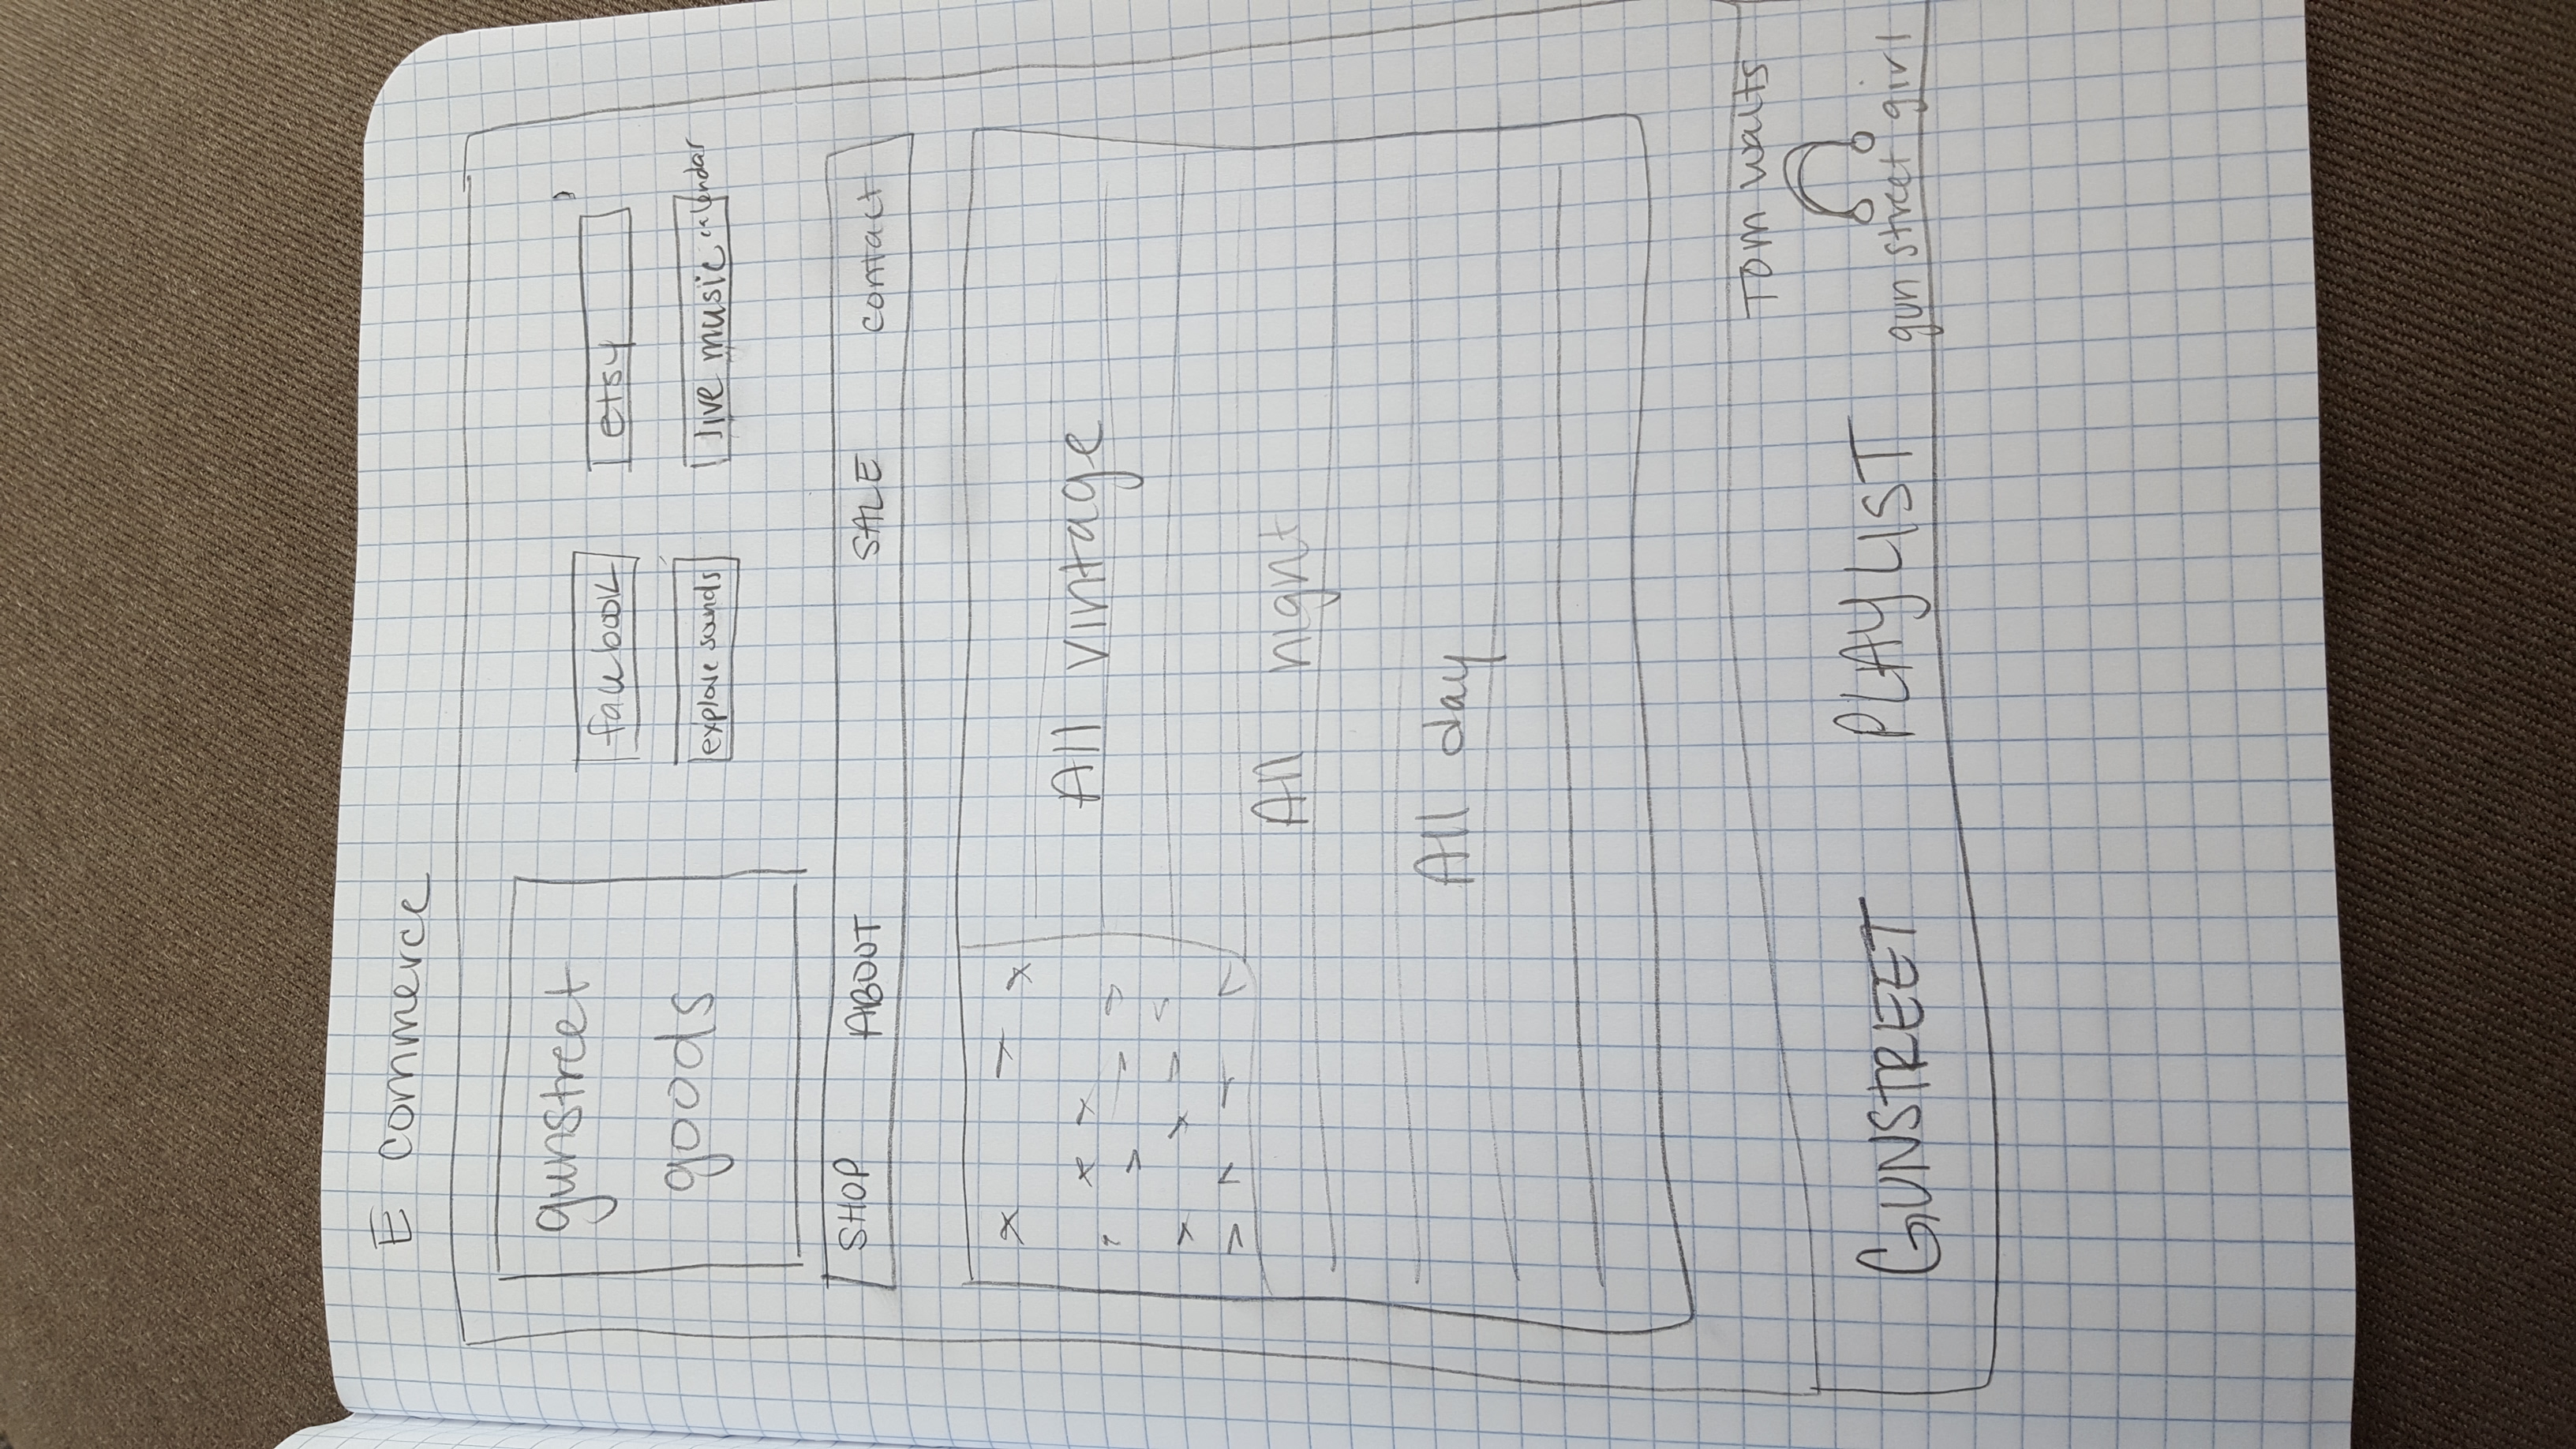 E commerce
gunstreet
goods
facebook
etsy
explore sounds
live music calendar
SHOP ABOUT SALE contact
All vintage
All night
All day
Tom Waits
GUNSTREET PLAYLIST
gun street girl